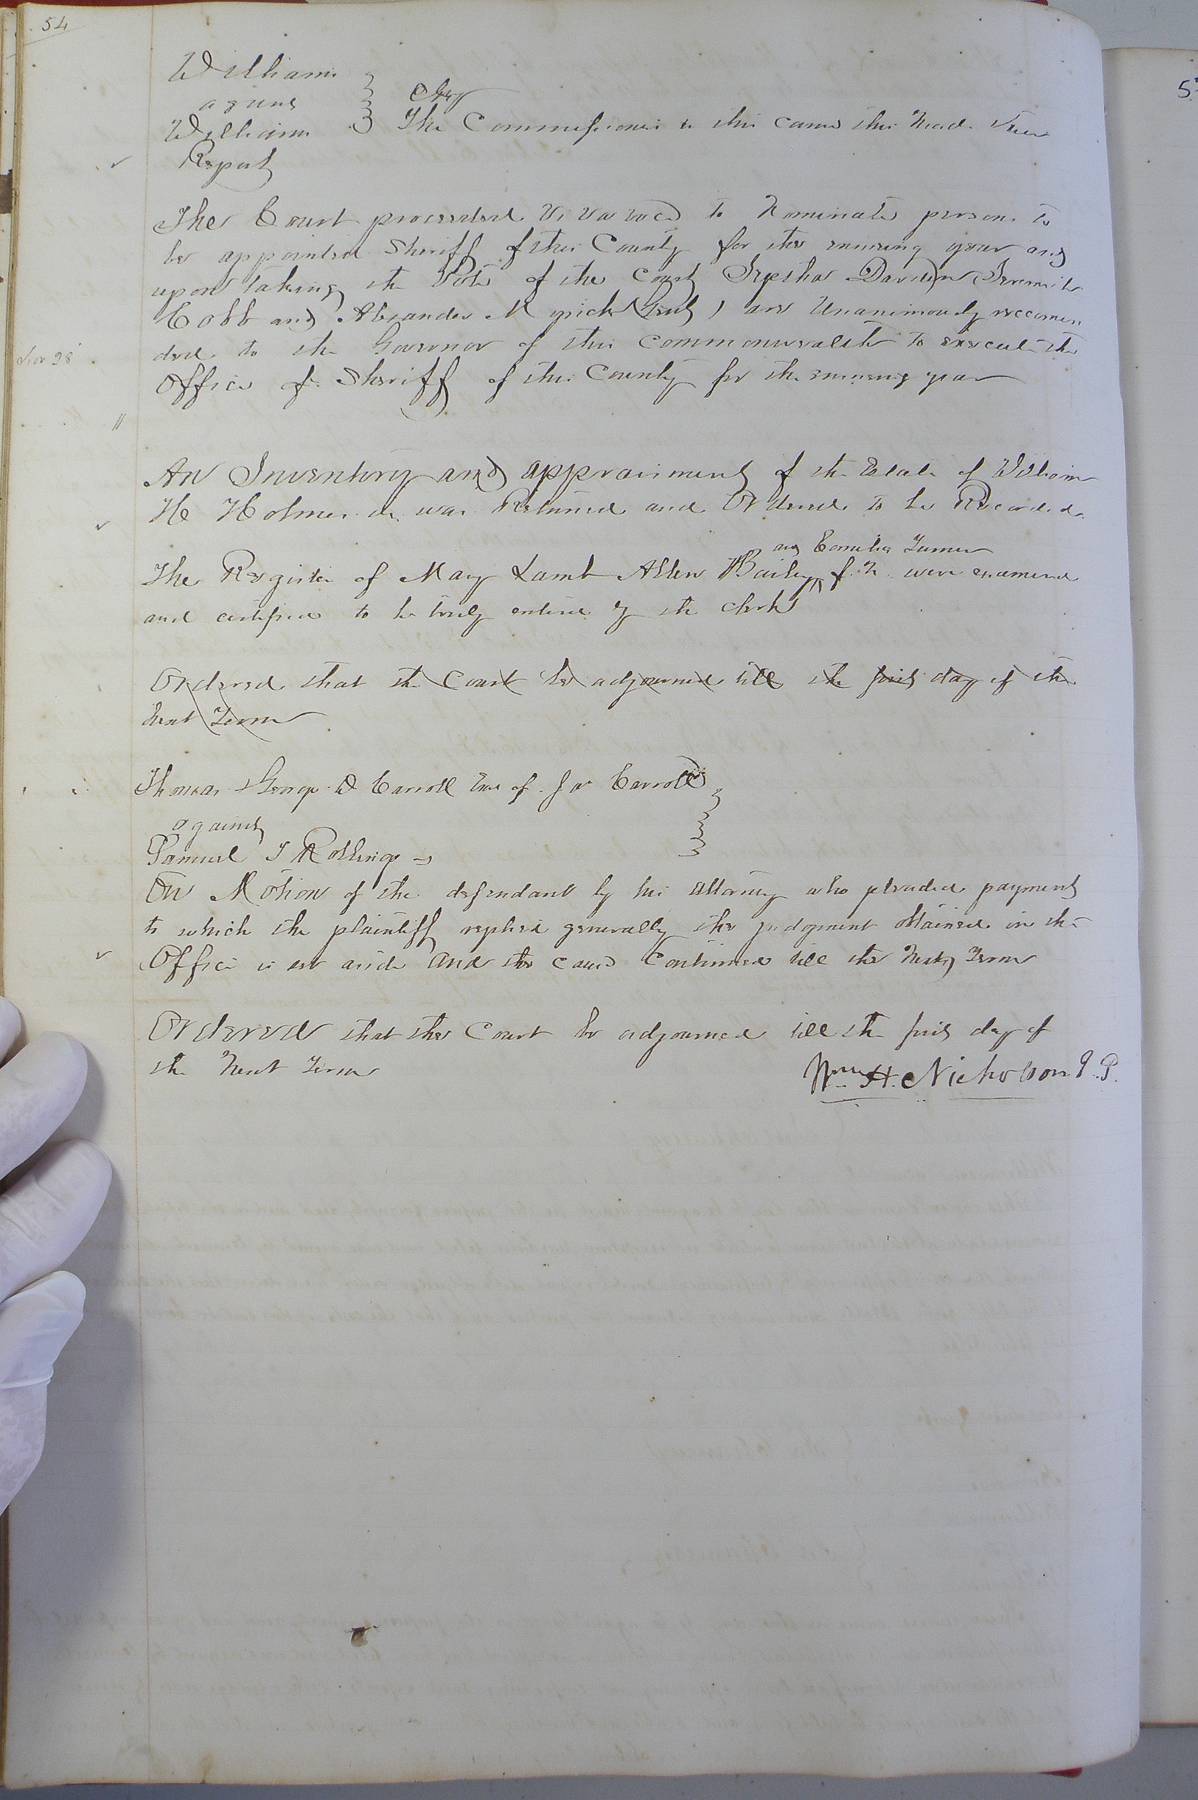 54
Williams
against
Williams } Chy
The Commissioner in this cause this Made their
Report
The Court proceeded Viva voce to Nominate persons to
be appointed Sheriff of this County for the ensuing year and
upon taking the Vote of the Court Davison Jeremiah
Cobb and Alexander Myrick (Gent) are Unanimously recommen
ded to the Governor of this Commonwealth to execute the
Office of Sheriff of this County for the ensuing year
An Inventory and appraisment of the Estate of William
H Holmes de. was Returned and Ordered to be Recorded.
and Cornelia Turner
The Register of Mary Lamb Allen Bailey f. n. were examined
and certified to be truly entered by the Clerk
Ordered that the Court be adjourned till the first day of the
Next Term
Thomas & George D Carroll Exrs of Js Carroll
against
Samuel J Rollings
On Motion of the defendant by his attorney who pleaded payment
to which the plaintiff replied generally the judgment obtained in the
Office is set aside And the cause Continued till the Next Term
Ordered that the Court be adjourned till the first day of
the Next Term
Wm. H. Nicholson J. P.